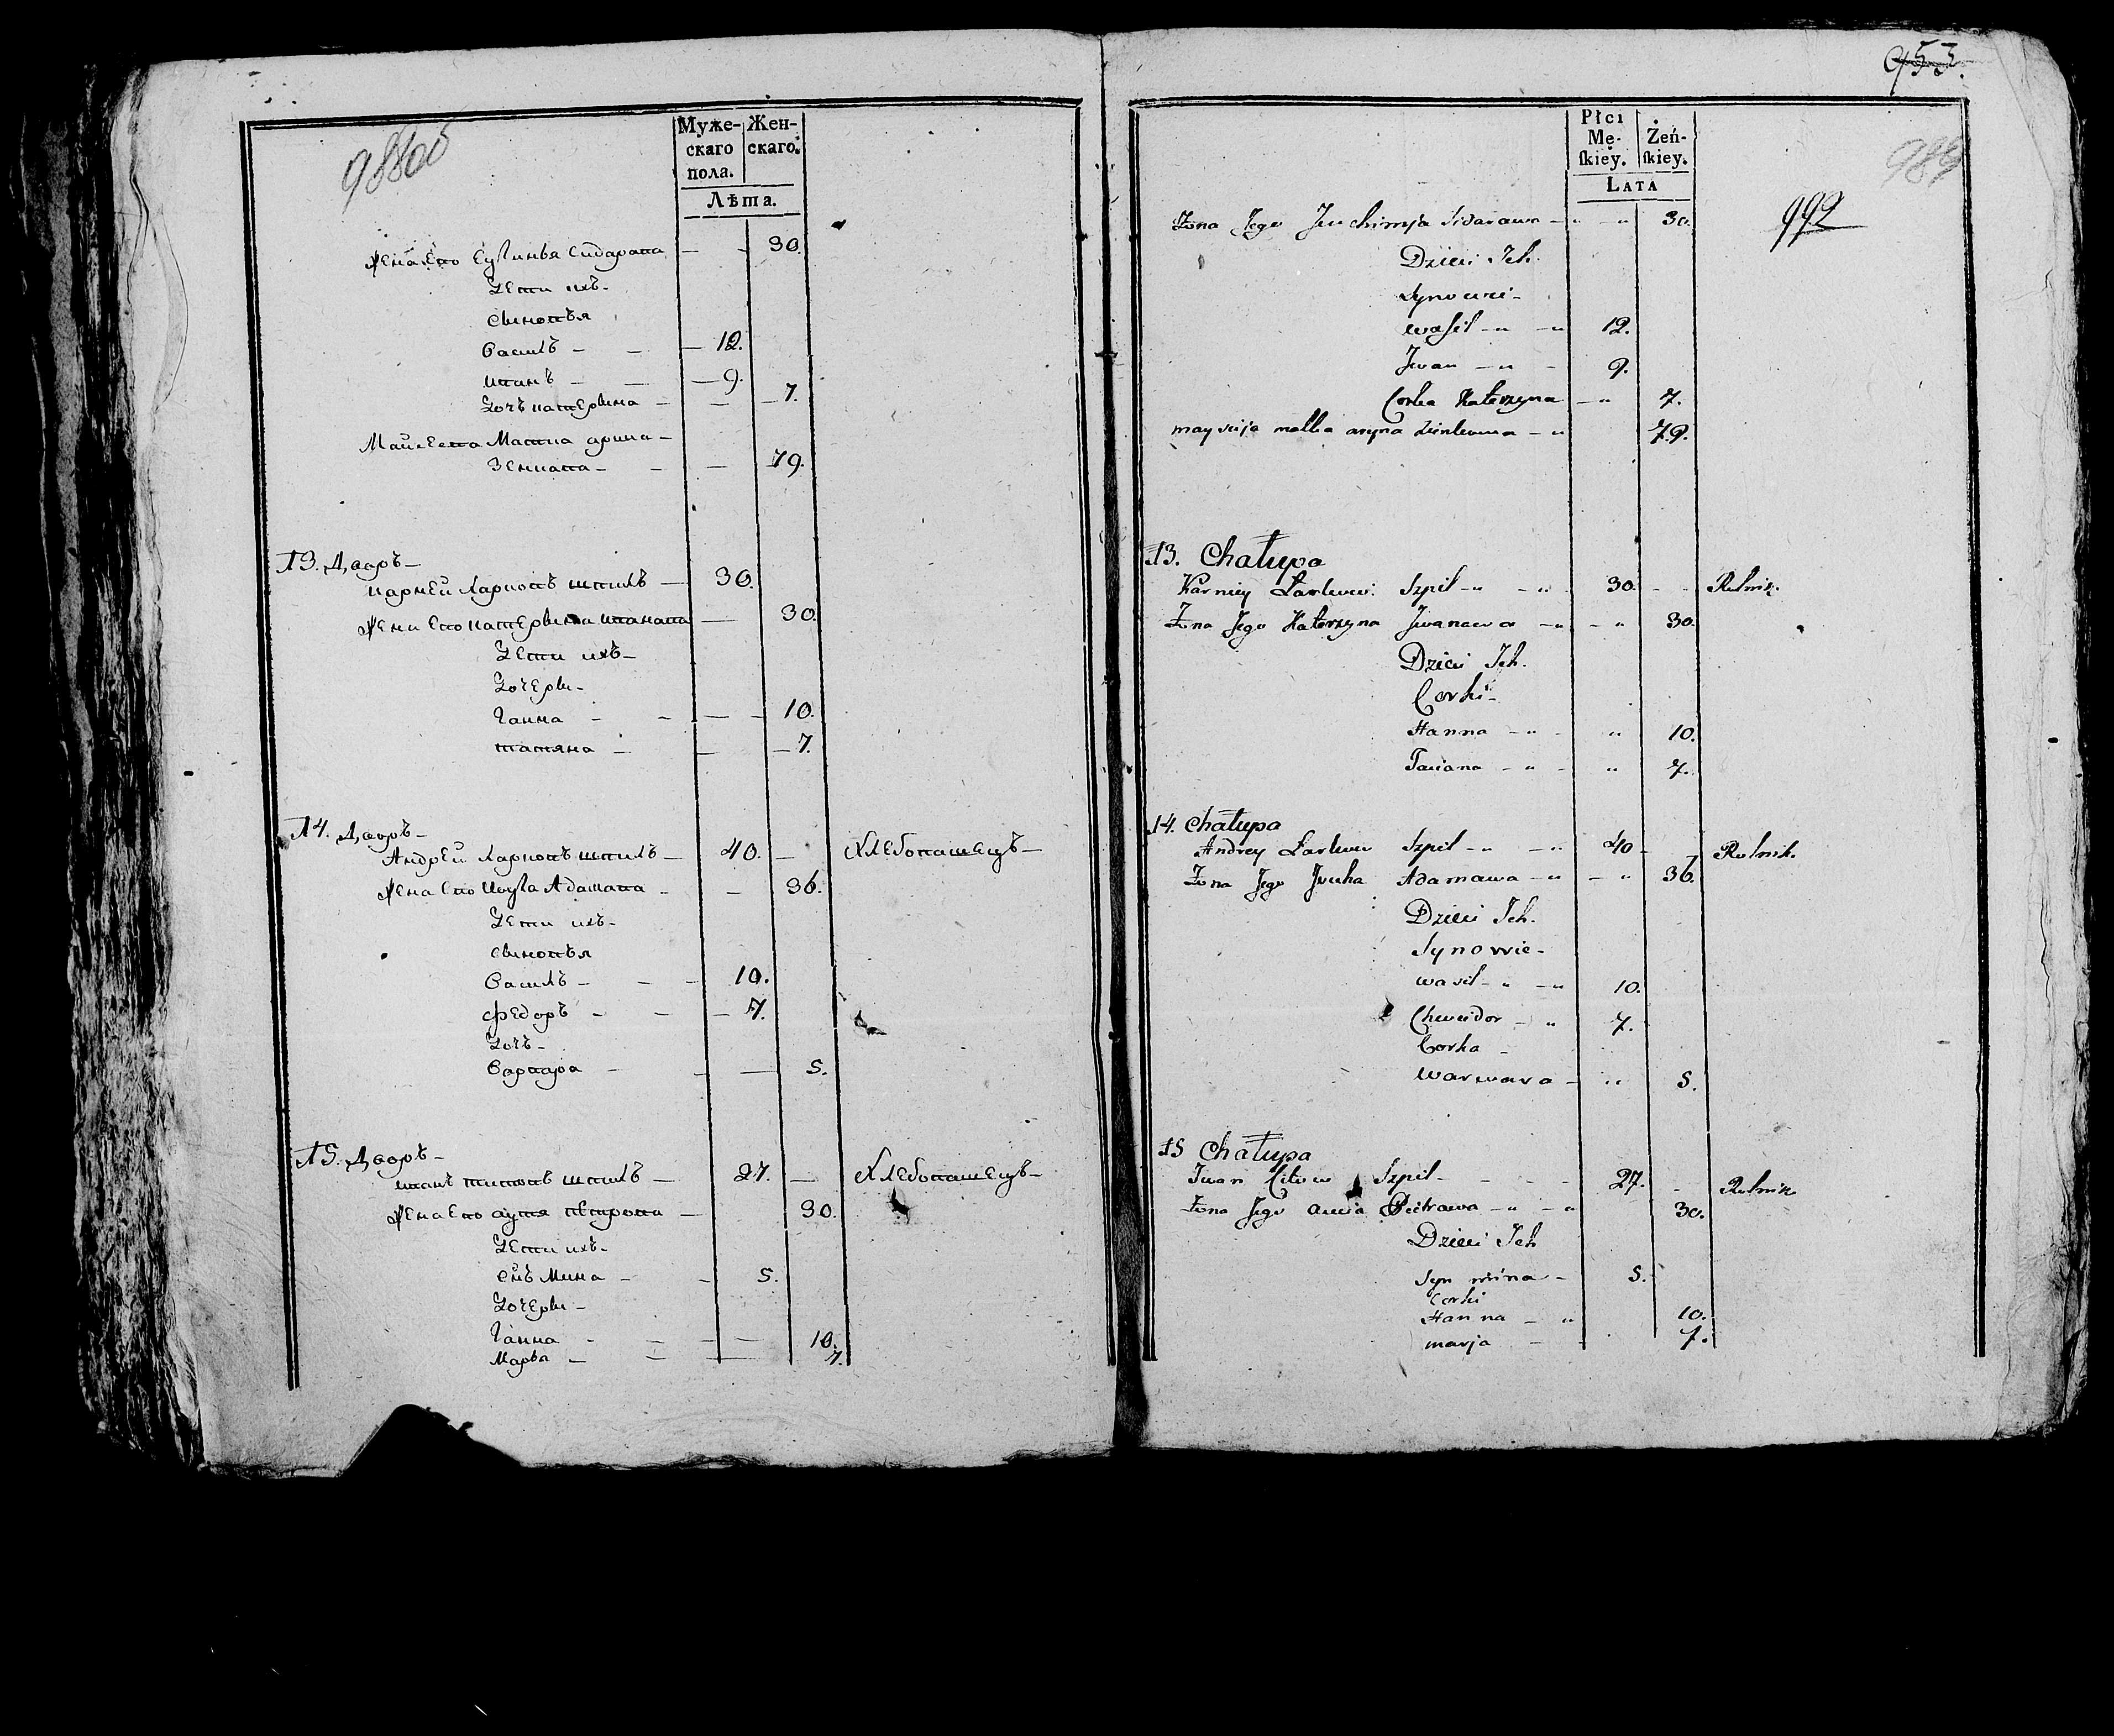 988об
Муже-
скаго
пола.
Жен-
скаго.
Лѣта.
Жена Его Еухимья Сидарава — - 30.
Дети ихъ-
Сыновья
Василь - — 12.
Иванъ - — 9.
Дочь Катерына - — 7.
Майсея Матка арина -
Зенкава - — 79.
13. Дворъ -
Карней Ларковъ Шпиль — 30.
Жена Его Катерына Иванава — 30.
Дети ихъ-
Дочеры-
Ганна - — 10.
Татяна - — 7.
14. Дворъ -
Андрей Ларковъ Шпиль — 40. — Хлебопашецъ-
Жена Его Адамава - — 36.
Дети ихъ-
Сыновья
Василь - — 10.
Федоръ - — 7.
Дочь-
Варвара - — 5.
15. Дворъ -
Иванъ Титовъ Шпиль — 27. — Хлебопашецъ-
Жена Его Петрова — 30.
Дети ихъ-
Снъ Мина - - 5.
Дочеры-
Ганна - — 10.
Марья - — 7.
953.
989
992
Płci
Mę-
ſkiey.
Żeń-
ſkiey.
Lata
Żona Jego Juchimja Sidarawa - " " 30.
Dzieci Ich.
Synowie-
Wasil - " - " 12.
Jwan - " - 9.
Corka Katerzyna - " 7.
Mayseja Matka aryna Zienkowa - " 79.
13. Chałupa
Karniey Larkow Szpil - " - " 30. - - Rolnik.
Żona Jego Katerzyna Jwanawa - " - " 30.
Dzieci Ich.
Corki-
Hanna - " - " 10.
Taciana - " - " 7.
14. Chałupa
Andrey Larkow Szpil - " - " 40 - Rolnik.
Żona Jego Adamawa - " - " 36.
Dzieci Ich.
Synowie-
Wasil - " - " 10.
Chwiedor - " 7.
Corka -
Warwara - " 5.
15 Chałupa
Jwan Citow Szpil - - - - 27. - Rolnik
Żona Jego Pietrawa - " - " 30.
Dzieci Ich
Syn Mina - 5.
Corki
Hanna - " 10.
Marja - - 7.